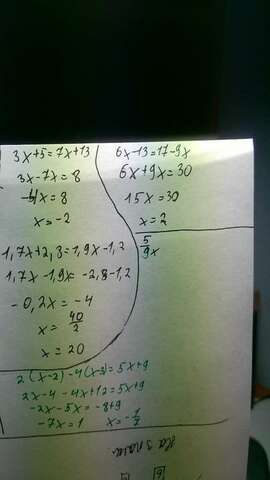 3x+5=7x+13
3x-7x=8
-4x=8
x=-2
1,7x+2,8=1,9x-1,2
1,7x-1,9x=-2,8-1,2
-0,2x=-4
x=40/2
x=20
2(x-2)-4(x-3)=5x+9
2x-4-4x+12=5x+9
-2x-5x=-8+9
-7x=1 x=-1/7
6x-13=17-9x
6x+9x=30
15x=30
x=2
5/9x
На 3